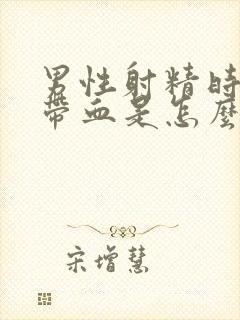 男性射精時
帶血是怎麼
宋增慧